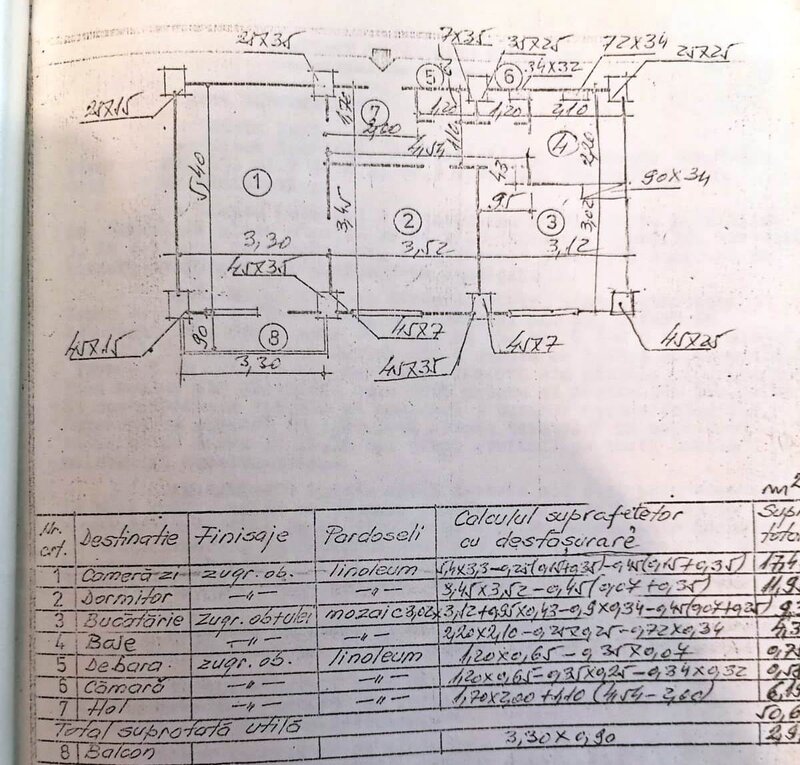 25X35
7X35
35X25
72X34
25X25
5
6
34X32
25X15
1,70
7
65
1,20
1,20
2,10
2,60
1,10
4
2,20
4,54
5,40
1
43
90X34
3,45
2
95
3
3,02
3,30
3,52
3,12
45X35
90
8
45X7
45X15
3,30
45X35
45X7
45X25
m²
Nr. crt.
Destinatie
Finisaje
Pardoseli
Calculul suprafetelor cu desfășurare
1 Cameră zi zugr. ob. linoleum 5,4x3,3-0,25(0,15+0,35)-0,45(0,15+0,35) 17,4
2 Dormitor -"- -"- 3,45x3,52-0,45(0,07+0,35) 11,9
3 Bucătărie zugr. obtulei mozaic 3,02x3,12+0,95x0,43-0,9x0,34-0,45(0,07+0,25)
4 Baie -"- -"- 2,20x2,10-0,25x0,25-0,72x0,34
5 Debara zugr. ob. linoleum 1,20x0,65-0,35x0,07
6 Cămară -"- -"- 1,20x0,65-0,35x0,25-0,34x0,32
7 Hol -"- -"- 1,70x2,60+1,10(4,54-2,60)
50,6
Total suprafată utilă
8 Balcon 3,30x0,90 2,9